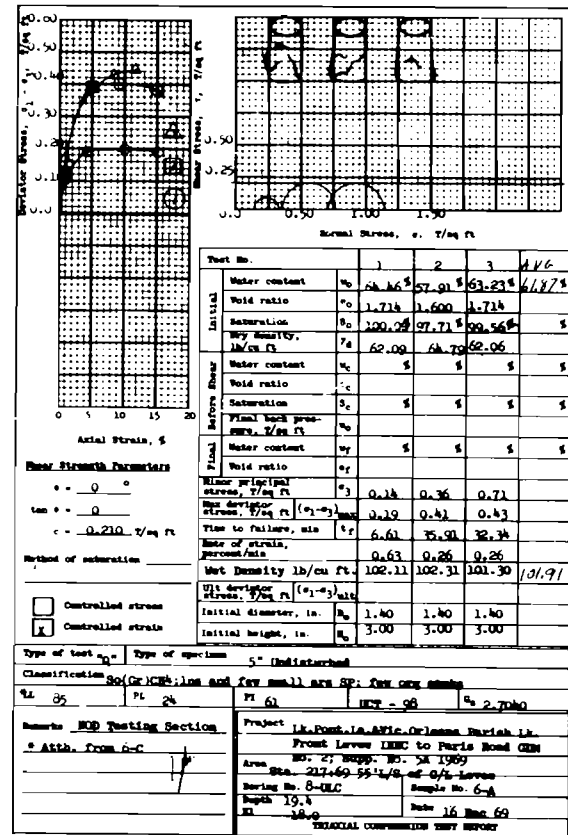 Deviator Stress, σ1 - σ3, T/sq ft
0.60
0.50
0.40
0.30
0.20
0.10
0.0
0 5 10 15 20
Axial Strain, %
Shear Stress, τ, T/sq ft
0.50
0.25
0.50 1.00 1.50
Normal Stress, σ, T/sq ft
Test No. 1 2 3 AVG
Initial
Water content wo 64.46 % 57.91 % 63.23 % 61.87 %
Void ratio eo 1.714 1.600 1.714
Saturation So 97.71 % 99.56 % %
Dry density, lb/cu ft γd 62.09 64.79 62.06
Before Shear
Water content wc % % % %
Void ratio
Saturation Sc % % % %
Final back pressure, T/sq ft uo
Final
Water content wf % % % %
Void ratio ef
Minor principal stress, T/sq ft σ3 0.14 0.36 0.71
Max deviator stress, T/sq ft (σ1-σ3)max 0.19 0.41 0.43
Time to failure, min tf 6.61 35.91 32.34
Rate of strain, percent/min 0.63 0.26 0.26
Wet Density lb/cu ft. 102.11 102.31 101.30 101.91
Ult deviator stress, T/sq ft (σ1-σ3)ult
Initial diameter, in. Do 1.40 1.40 1.40
Initial height, in. Ho 3.00 3.00 3.00
Shear Strength Parameters
ø = 0 °
tan ø = 0
c = 0.210 T/sq ft
Method of saturation
Controlled stress
X Controlled strain
Type of test "Q" Type of specimen 5" Undisturbed
Classification So(Gr)CH4; lns and few small ars SP; few org
LL 85 PL 24 PI 61 UCT - 98 Gs 2.7040
Remarks NOD Testing Section
* Atth. from 6-C
Project Lk.Pont.La.&Vic.Orleans Parish Lk.
Front Levee IHNC to Paris Road GDM
No. 2; Supp. No. 5A 1969
Area Sta. 217+69 55'L/S of C/L Levee
Boring No. 8-ULC Sample No. 6-A
Depth 19.4
El 18.0 Date 16 Dec 69
TRIAXIAL COMPRESSION TEST REPORT